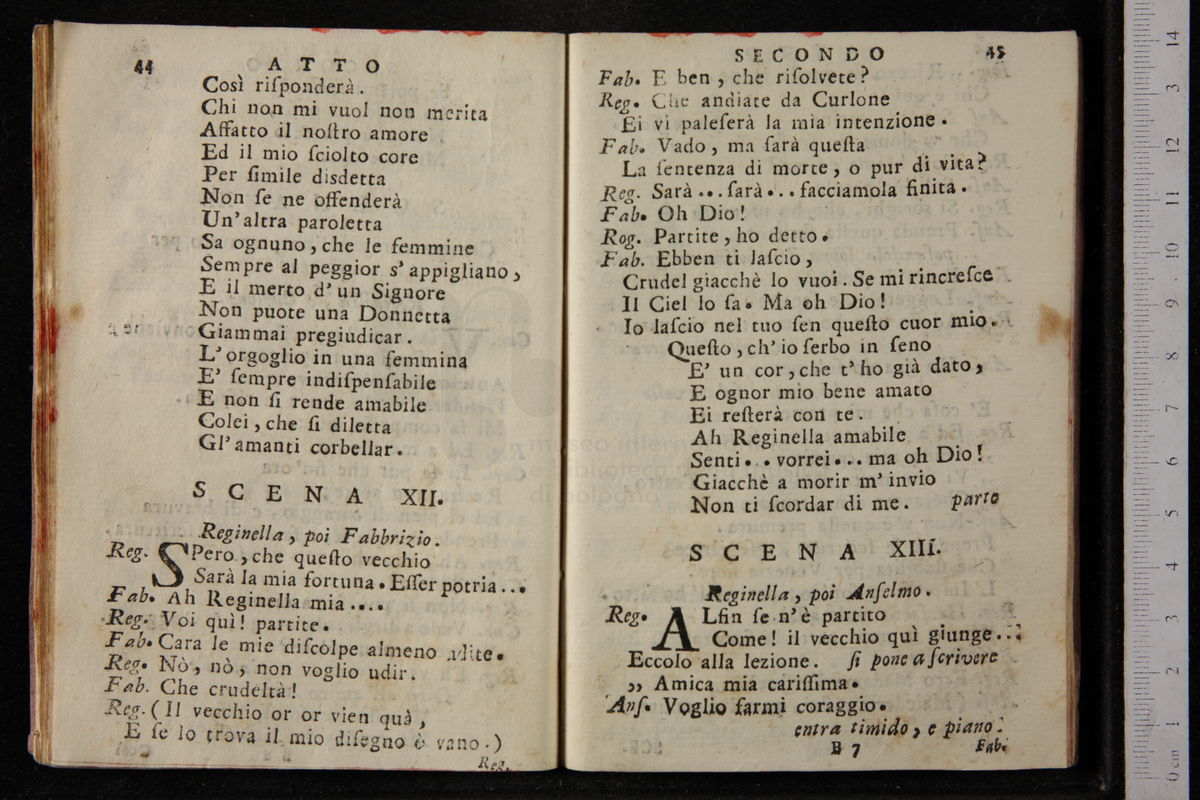 44 ATTO
Così riſponderà.
Chi non mi vuol non merita
Affatto il noſtro amore
Ed il mio ſciolto core
Per ſimile disdetta
Non ſe ne offenderà
Un' altra paroletta
Sa ognuno, che le femmine
Sempre al peggior s' appigliano,
E il merto d' un Signore
Non puote una Donnetta
Giammai pregiudicar.
L' orgoglio in una femmina
E' ſempre indiſpenſabile
E non ſi rende amabile
Colei, che ſi diletta
Gl' amanti corbellar.
SCENA XII.
Reginella, poi Fabbrizio.
Reg. SPero, che queſto vecchio
Sarà la mia fortuna. Eſſer potria...
Fab. Ah Reginella mia....
Reg. Voi quì! partite.
Fab. Cara le mie diſcolpe almeno udite.
Reg. Nò, nò, non voglio udir.
Fab. Che crudeltà!
Reg. (Il vecchio or or vien quà,
E ſe lo trova il mio diſegno è vano.)
Reg.
SECONDO 45
Fab. E ben, che riſolvete?
Reg. Che andiate da Curlone
Ei vi paleſerà la mia intenzione.
Fab. Vado, ma ſarà queſta
La ſentenza di morte, o pur di vita?
Reg. Sarà... ſarà... facciamola finita.
Fab. Oh Dio!
Rog. Partite, ho detto.
Fab. Ebben ti laſcio,
Crudel giacchè lo vuoi. Se mi rincreſce
Il Ciel lo ſa. Ma oh Dio!
Io laſcio nel tuo ſen queſto cuor mio.
Queſto, ch' io ſerbo in ſeno
E' un cor, che t' ho già dato,
E ognor mio bene amato
Ei reſterà con te.
Ah Reginella amabile
Senti... vorrei... ma oh Dio!
Giacchè a morir m' invio
Non ti ſcordar di me. parte
SCENA XIII.
Reginella, poi Anſelmo.
Reg. ALfin ſe n' è partito
Come! il vecchio quì giunge...
Eccolo alla lezione. ſi pone a ſcrivere
,, Amica mia cariſſima.
Anſ. Voglio farmi coraggio.
entra timido, e piano.
B 7 Fab.
museo intern
biblioteca
di bologna
14
13
12
11
10
9
8
7
6
5
4
3
2
1
0 cm